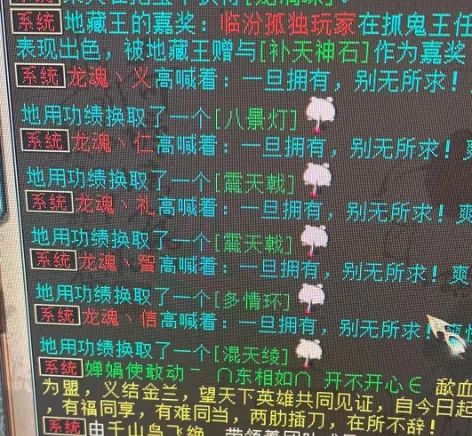 系统 地藏王的嘉奖：临汾孤独玩家在抓鬼王任
表现出色，被地藏王赠与[补天神石]作为嘉奖
系统 龙魂丶义高喊着：一旦拥有，别无所求！
地用功绩换取了一个[八景灯]
系统 龙魂丶仁高喊着：一旦拥有，别无所求！爽
地用功绩换取了一个[震天戟]
系统 龙魂丶礼高喊着：一旦拥有，别无所求！爽
地用功绩换取了一个[震天戟]
系统 龙魂丶智高喊着：一旦拥有，别无所求！爽
地用功绩换取了一个[多情环]
系统 龙魂丶信高喊着：一旦拥有，别无所求！爽
地用功绩换取了一个[混天绫]
系统 婵娟使敢动ˉ ∩东相如∩ 开不开心∈ 歃血
为盟，义结金兰，望天下英雄共同见证，自今日起
，有福同享，有难同当，两肋插刀，在所不辞！
系统 由千山鸟飞绝